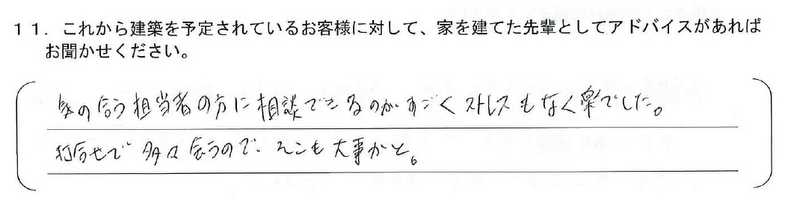 11. これから建築を予定されているお客様に対して、家を建てた先輩としてアドバイスがあれば
お聞かせください。
気の合う担当者の方に相談できるのがすごくストレスもなく楽でした。
打合せで多々会うので、そこも大事かと。